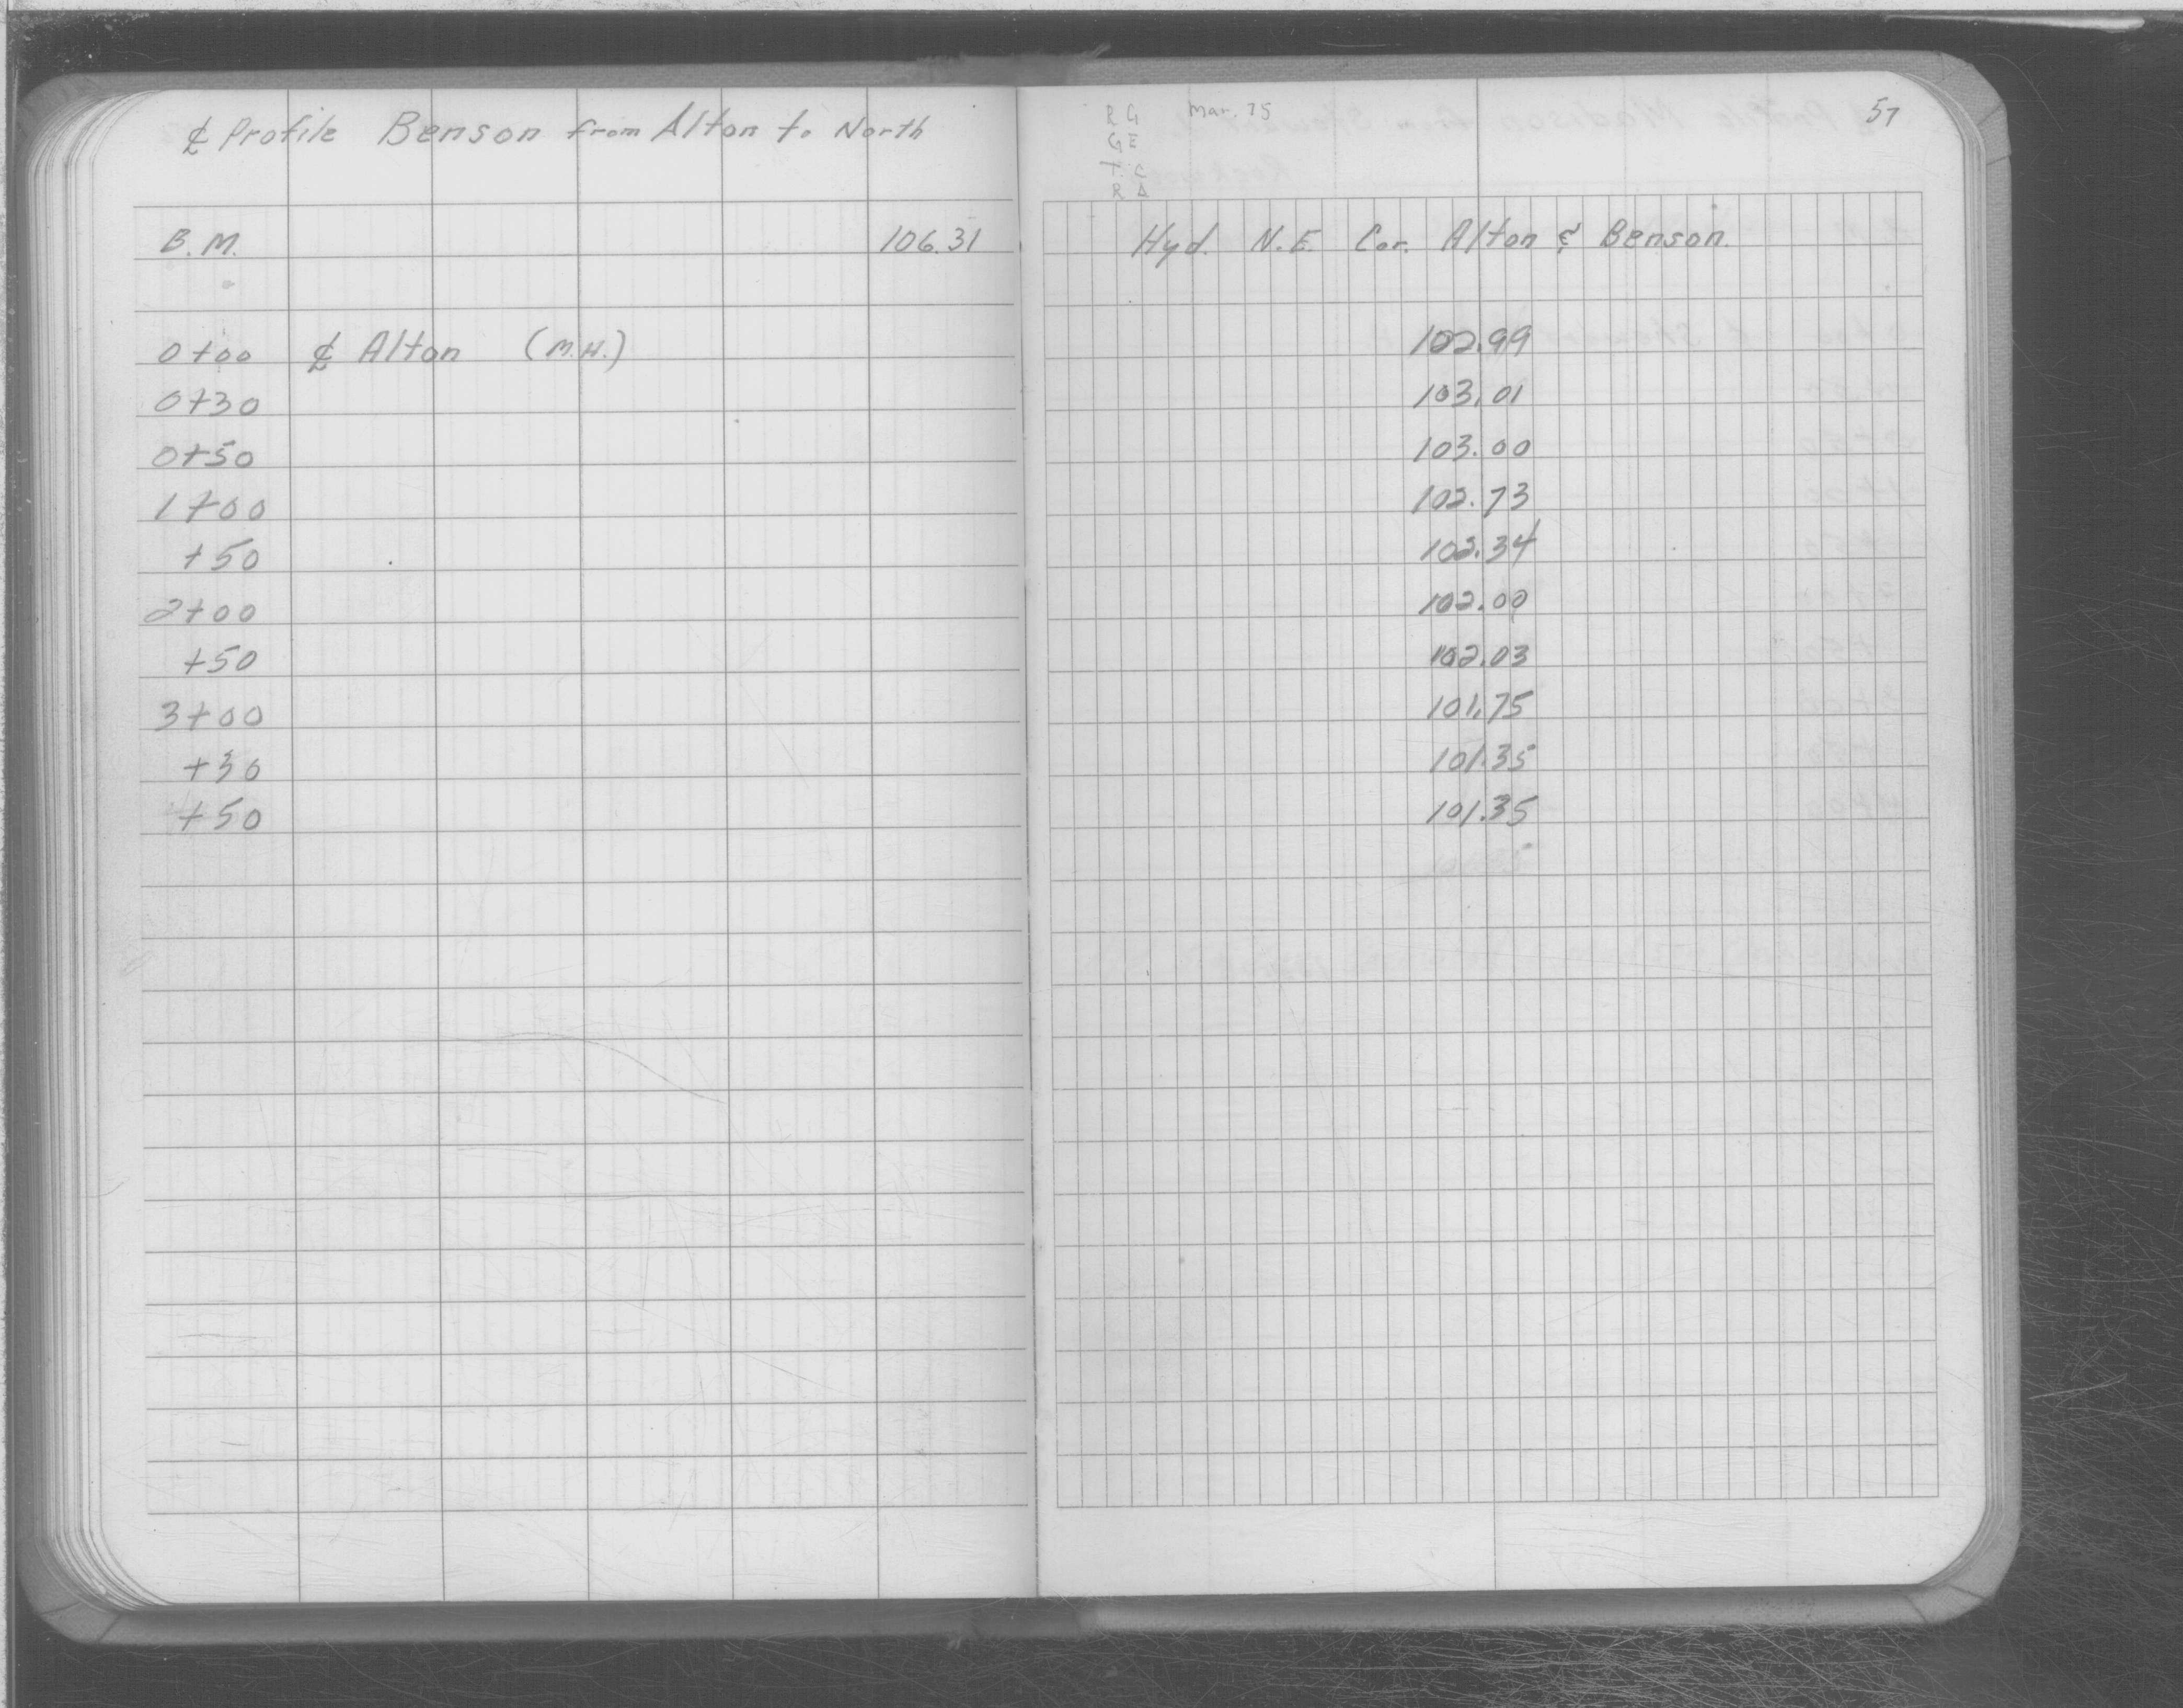 ℄ Profile Benson from Alton to North
R G Mar. 75
G E
T. C
R A
57
B.M. 106.31 Hyd. N.E. Cor. Alton & Benson.
0+00 ℄ Alton (M.H.) 102.99
0+30 103.01
0+50 103.00
1+00 102.73
+50 102.34
2+00 102.00
+50 102.03
3+00 101.75
+30 101.35
+50 101.35